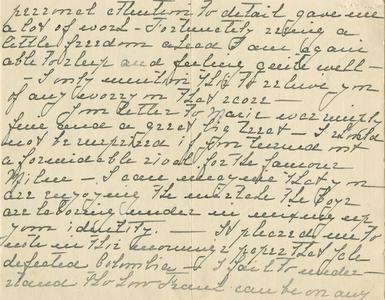 personal attention to detail gave me
a lot of work - Fortunately
little freedom ahead I am again
able to sleep and feeling quite well -
- I only mention this to relieve you
of any worry on that score -
letter to Marie was mighty
fine and a great big treat - I should
not be surprised if you turned out
a formidable rival for the famous
Milne - I can imagine that you
are enjoying the mistake the boys
are laboring under in mixing up
your identity. - It pleased me to
note in this mornings paper that Yale
defeated Columbia - I fail to under-
stand how can be on any